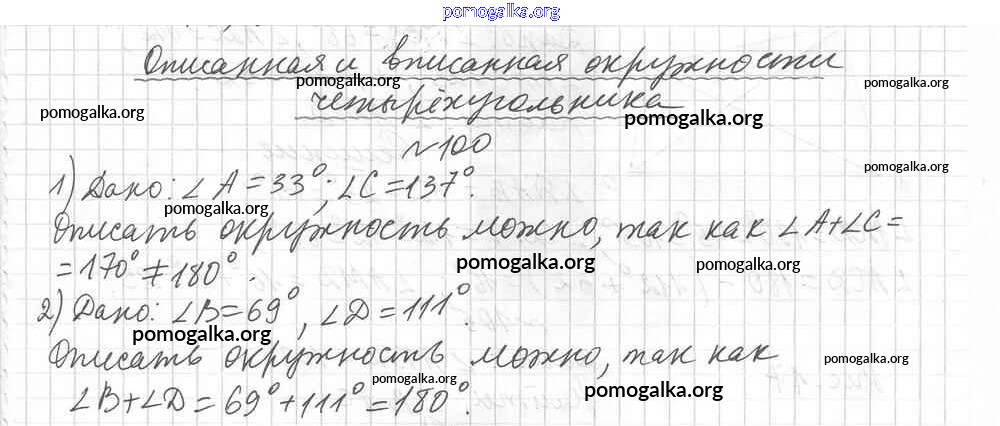 pomogalka.org
Описанная и вписанная окружности
pomogalka.org pomogalka.org
pomogalka.org четырёхугольника
pomogalka.org
№100
pomogalka.org
1) Дано: ∠A = 33°; ∠C = 137°.
pomogalka.org
Описать окружность можно, так как ∠A+∠C =
= 170° ≠ 180°.
pomogalka.org pomogalka.org
2) Дано: ∠B = 69°, ∠D = 111°.
pomogalka.org
Описать окружность можно, так как
pomogalka.org
pomogalka.org pomogalka.org
∠B+∠D = 69°+111° = 180°.